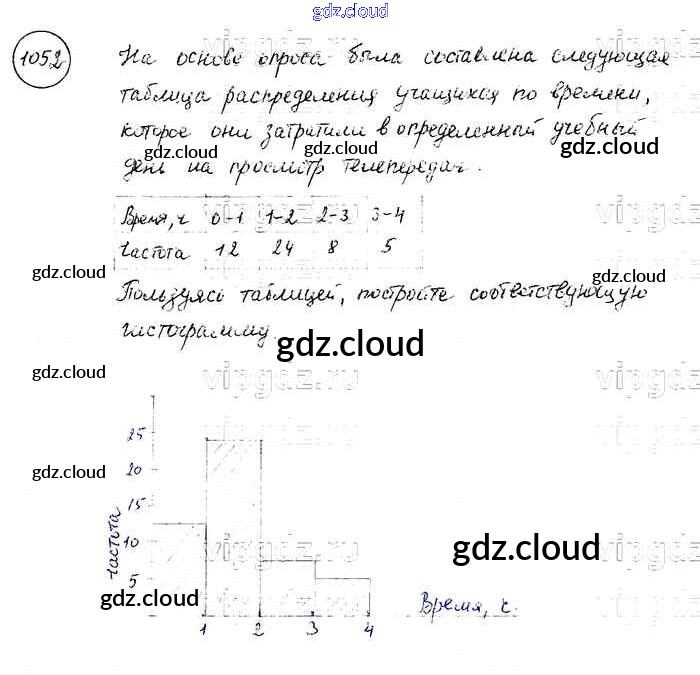 gdz.cloud
1052
На основе опроса была составлена следующая
таблица распределения учащихся по времени,
которое они затратили в определенный учебный
день на просмотр телепередач.
gdz.cloud
gdz.cloud
Время, ч 0-1 1-2 2-3 3-4
Частота 12 24 8 5
gdz.cloud
gdz.cloud
Пользуясь таблицей, постройте соответствующую
гистограмму.
gdz.cloud
gdz.cloud
vipgdz.ru
vipgdz
25
gdz.cloud
20
15
частота
10
gdz.cloud
5
gdz.cloud
Время, ч.
1 2 3 4